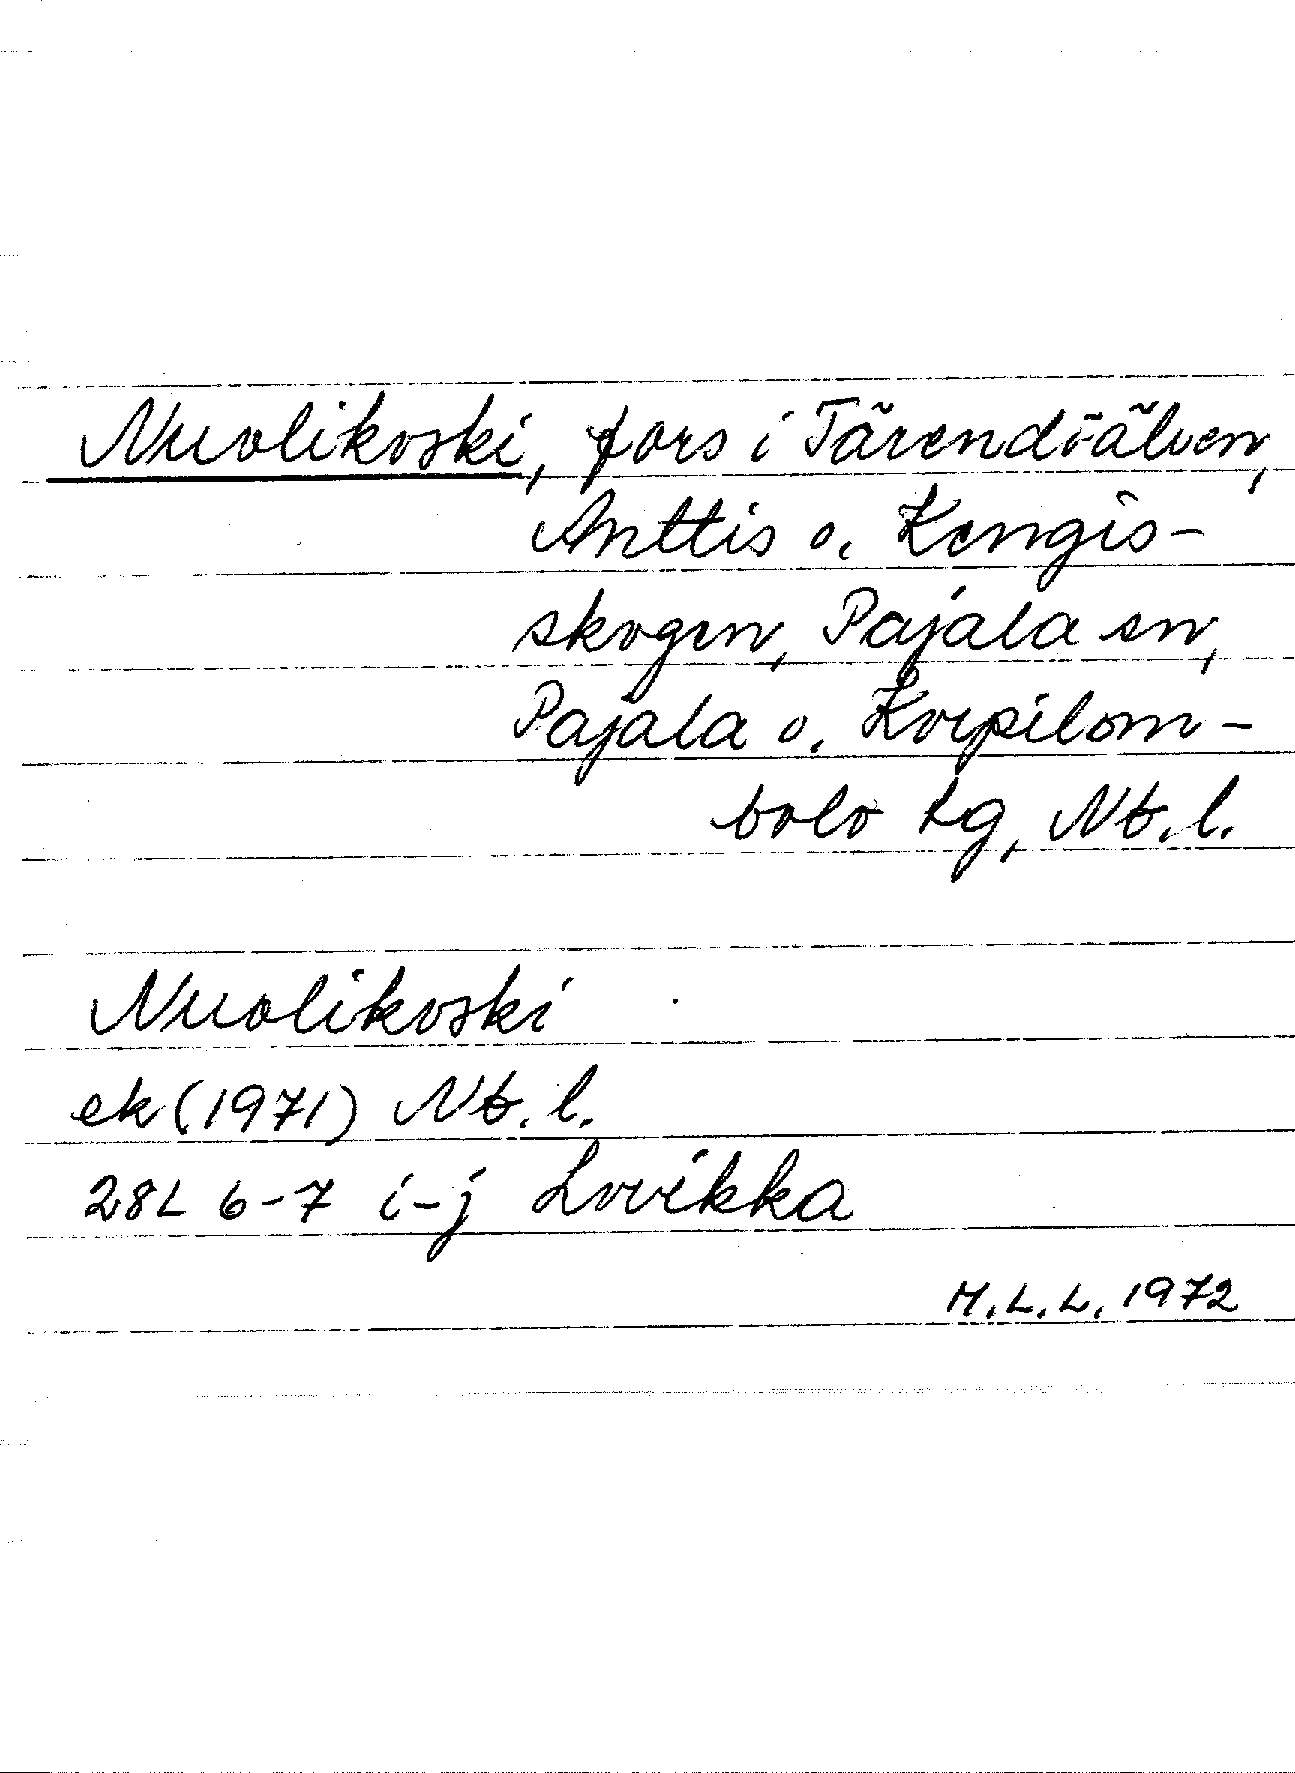 Nuolikoski, fors i Tärendöälven,
Anttis o. Kengis-
skogen, Pajala sn,
Pajala o. Korpilom-
bolo tg, Nb.l.
Nuolikoski
ek (1971) Nb.l.
28L 6-7 i-j Lovikka
M.L.L. 1972